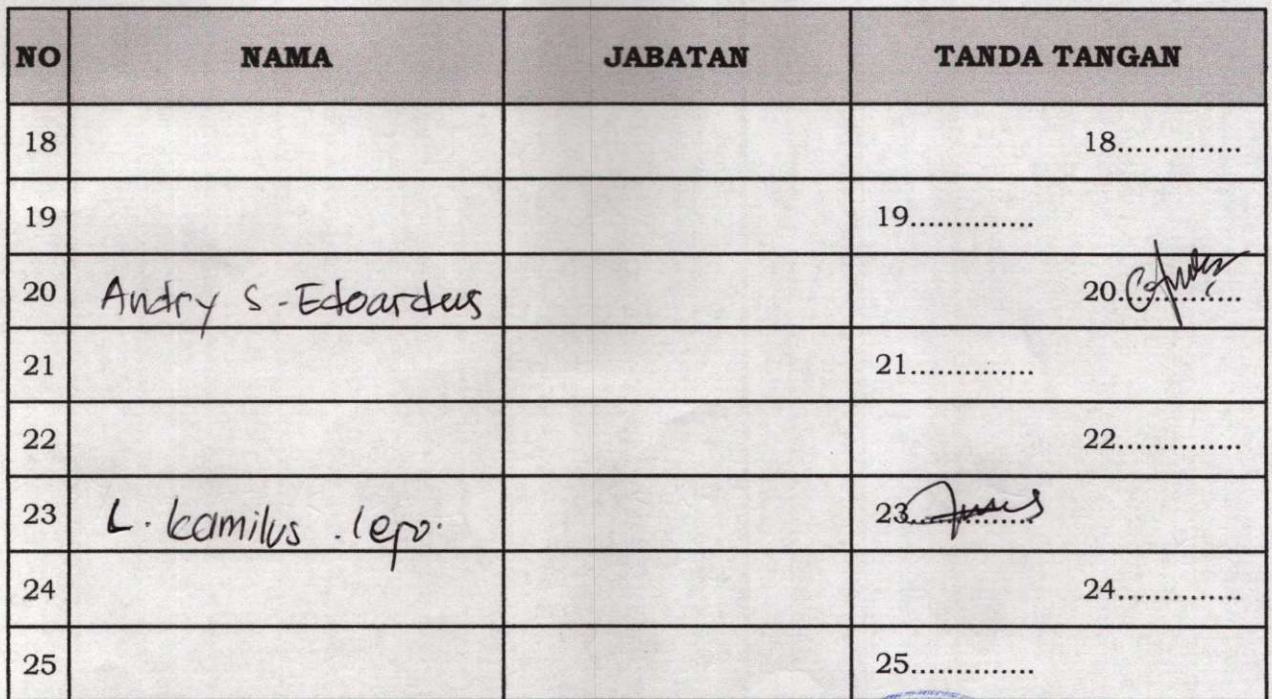 NO NAMA JABATAN TANDA TANGAN
18 18..............
19 19..............
20 Andry S - Edoardus 20..............
21 21..............
22 22..............
23 L. kamilus . lepo. 23..............
24 24..............
25 25..............